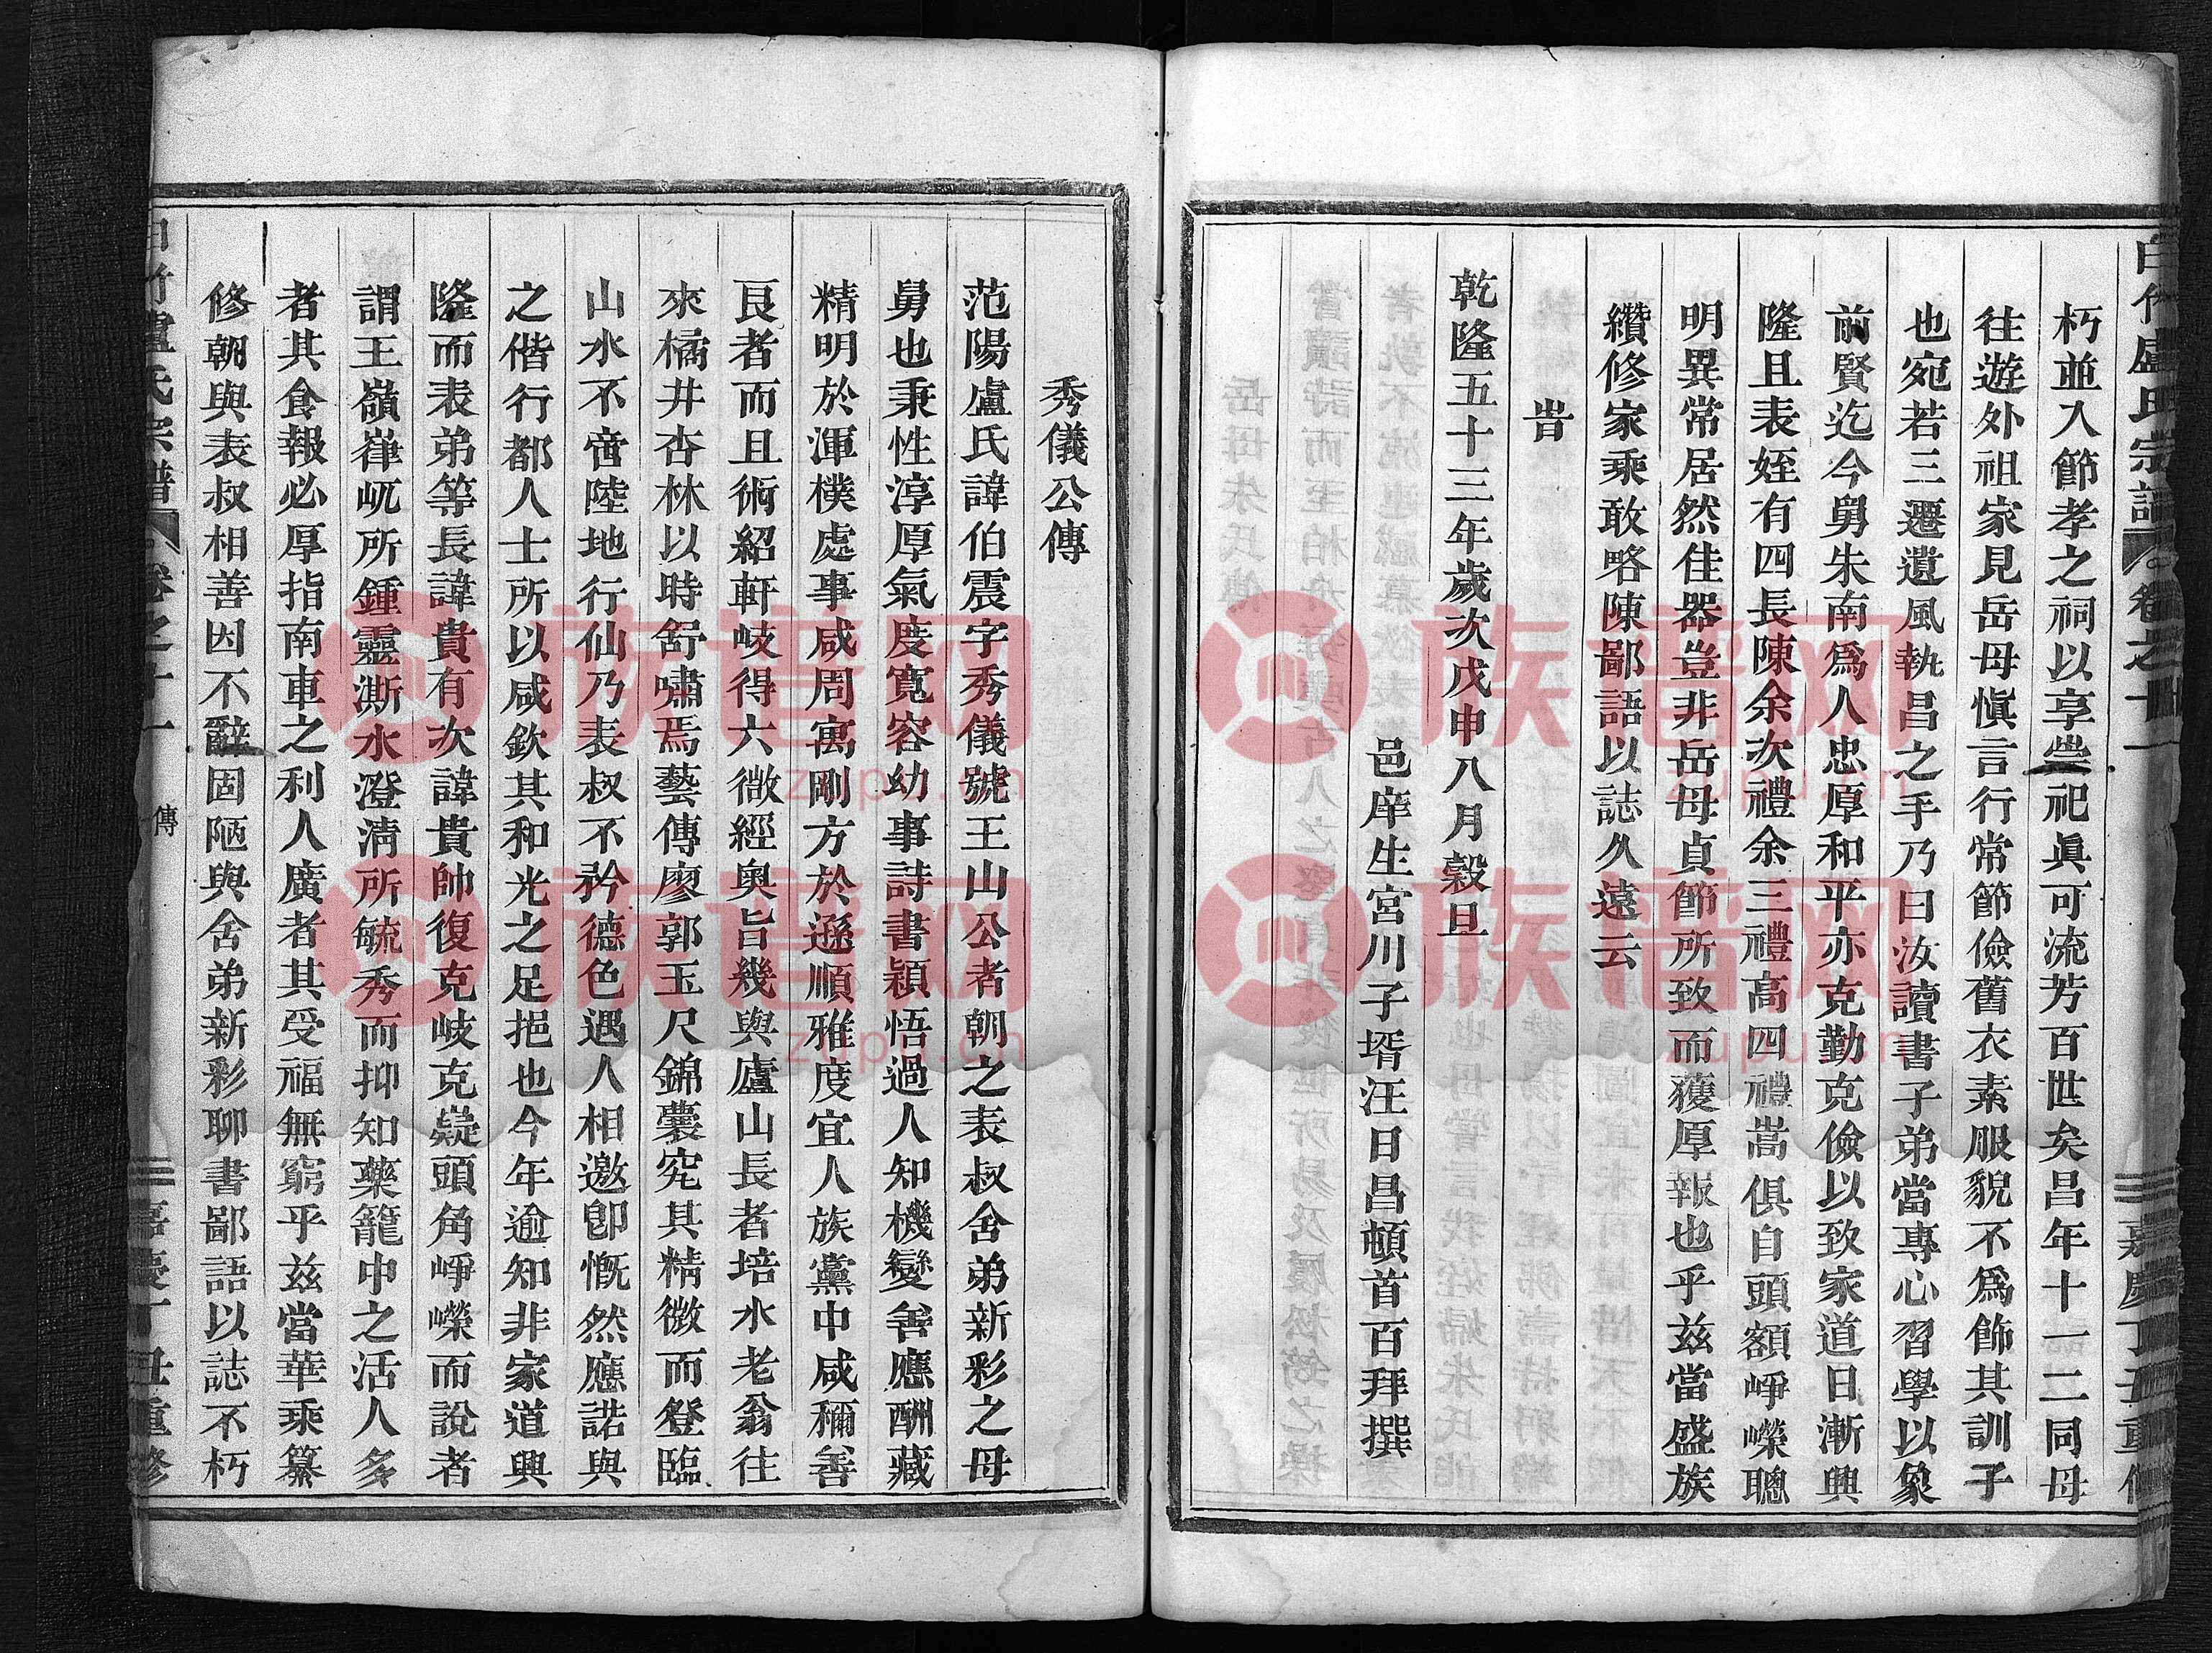 白竹盧氏宗譜 卷之十一 嘉慶丁丑重修
朽並入節孝之祠以享蒸祀眞可流芳百世矣昌年十一二同母
往遊外祖家見岳母愼言行常節儉舊衣素服貌不爲飾其訓子
也宛若三遷遺風執昌之手乃曰汝讀書子弟當專心習學以象
前賢迄今舅朱南爲人忠厚和平亦克勤克儉以致家道日漸興
隆且表姪有四長陳余次禮余三禮高四禮嵩俱自頭額崢嶸聰
明異常居然佳器豈非岳母貞節所致而獲厚報也乎兹當盛族
纘修家乘敢略陳鄙語以誌久遠云
旹
乾隆五十三年歲次戊申八月穀旦
邑庠生宮川子壻汪日昌頓首百拜撰
秀儀公傳
范陽盧氏諱伯震字秀儀號王山公者朝之表叔舍弟新彩之母
舅也秉性淳厚氣度寬容幼事詩書穎悟過人知機變善應酬藏
精明於渾樸處事咸周寓剛方於遜順雅度宜人族黨中咸稱善
良者而且術紹軒岐得六微經奧旨幾與廬山長者培水老翁往
來橘井杏林以時舒嘯焉藝傳廖郭玉尺錦囊究其精微而登臨
山水不啻陸地行仙乃表叔不矜德色遇人相邀卽慨然應諾與
之偕行都人士所以咸欽其和光之足挹也今年逾知非家道興
隆而表弟等長諱貴有次諱貴帥復克岐克嶷頭角崢嶸而說者
謂王嶺嵂屼所鍾靈澌水澄淸所毓秀而抑知藥籠中之活人多
者其食報必厚指南車之利人廣者其受福無窮乎兹當華乘纂
修朝與表叔相善因不辭固陋與舍弟新彩聊書鄙語以誌不朽
白竹盧氏宗譜 卷之十一 傳 嘉慶丁丑重修
族谱网
zupu.cn
族谱网
zupu.cn
族谱网
zupu.cn
族谱网
zupu.cn